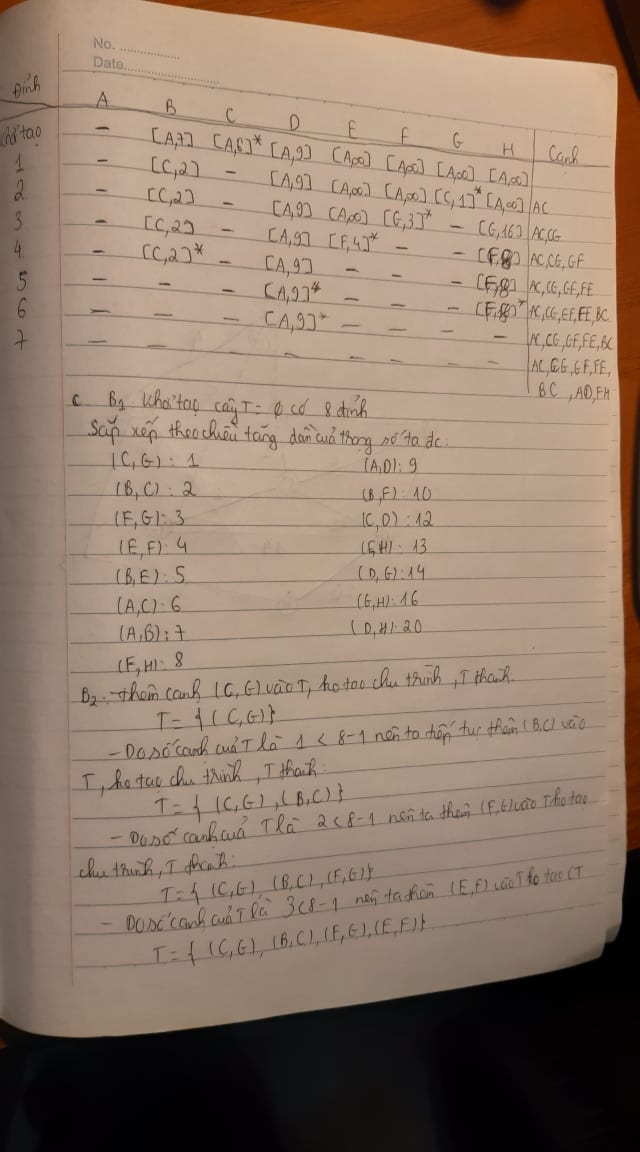 No. ................
Date........................
Đỉnh A B C D E F G H Cạnh
khởi tạo – [A,7] [A,6]* [A,9] [A,∞] [A,∞] [A,∞] [A,∞]
1 – [C,2] – [A,9] [A,∞] [A,∞] [C,1]* [A,∞] AC
2 – [C,2] – [A,9] [A,∞] [G,3]* – [G,16] AC,CG
3 – [C,2] – [A,9] [F,4]* – – [F,8] AC,CG,GF
4 – [C,2]* – [A,9] – – – [F,8] AC,CG,GF,FE
5 – – – [A,9]* – – – [F,8]* AC,CG,GF,FE,BC
6 – – – [A,9]* – – – – AC,CG,GF,FE,BC
7 – – – – – – – – AC,CG,GF,FE,
BC, AD,FH
c B1 khởi tạo cây T = ∅ có 8 đỉnh
Sắp xếp theo chiều tăng dần của trọng số ta đc:
(C,G): 1 (A,D): 9
(B,C): 2 (B,F): 10
(F,G): 3 (C,D): 12
(E,F): 4 (E,H): 13
(B,E): 5 (D,G): 14
(A,C): 6 (G,H): 16
(A,B): 7 (D,H): 20
(F,H): 8
B2: – thêm cạnh (C,G) vào T, ko tạo chu trình, T thành:
T = { (C,G)}
– Do số cạnh của T là 1 < 8-1 nên ta tiếp tục thêm (B,C) vào
T, ko tạo chu trình, T thành:
T = { (C,G), (B,C)}
– Do số cạnh của T là 2 < 8-1 nên ta thêm (F,G) vào T ko tạo
chu trình, T thành:
T = { (C,G), (B,C), (F,G)}
– Do số cạnh của T là 3 < 8-1 nên ta thêm (E,F) vào T ko tạo CT
T = { (C,G), (B,C), (F,G), (E,F)}